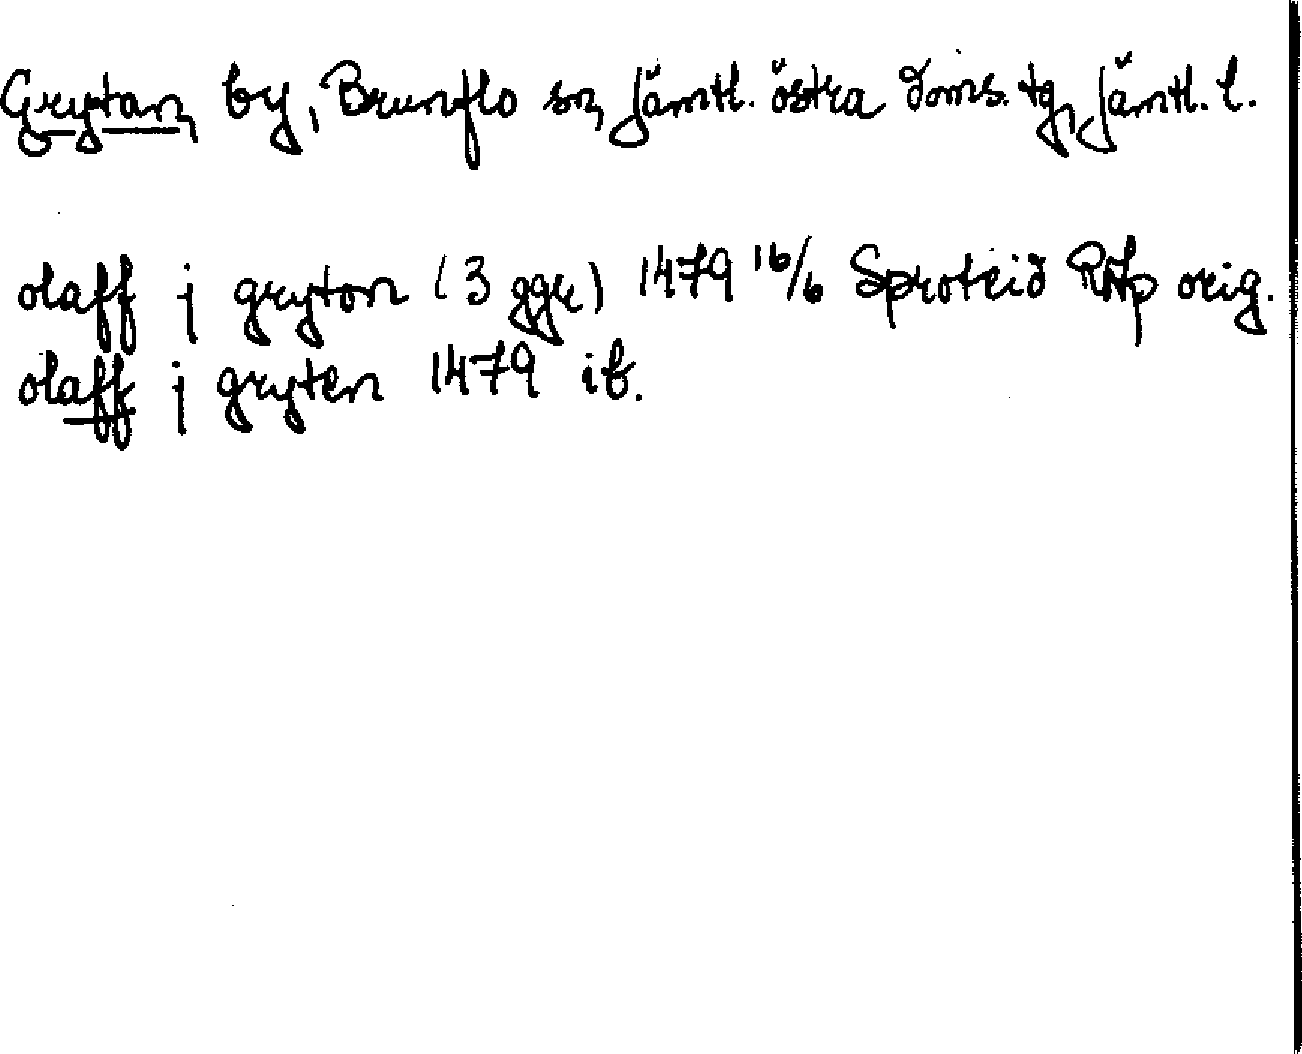 Grytan, by, Brunflo sn, Jämtl. östra doms. tg, Jämtl. l.
olaff j gryton (3 ggr) 1479 16/6 Sproteid RAp orig.
olaff j gryten 1479 ib.